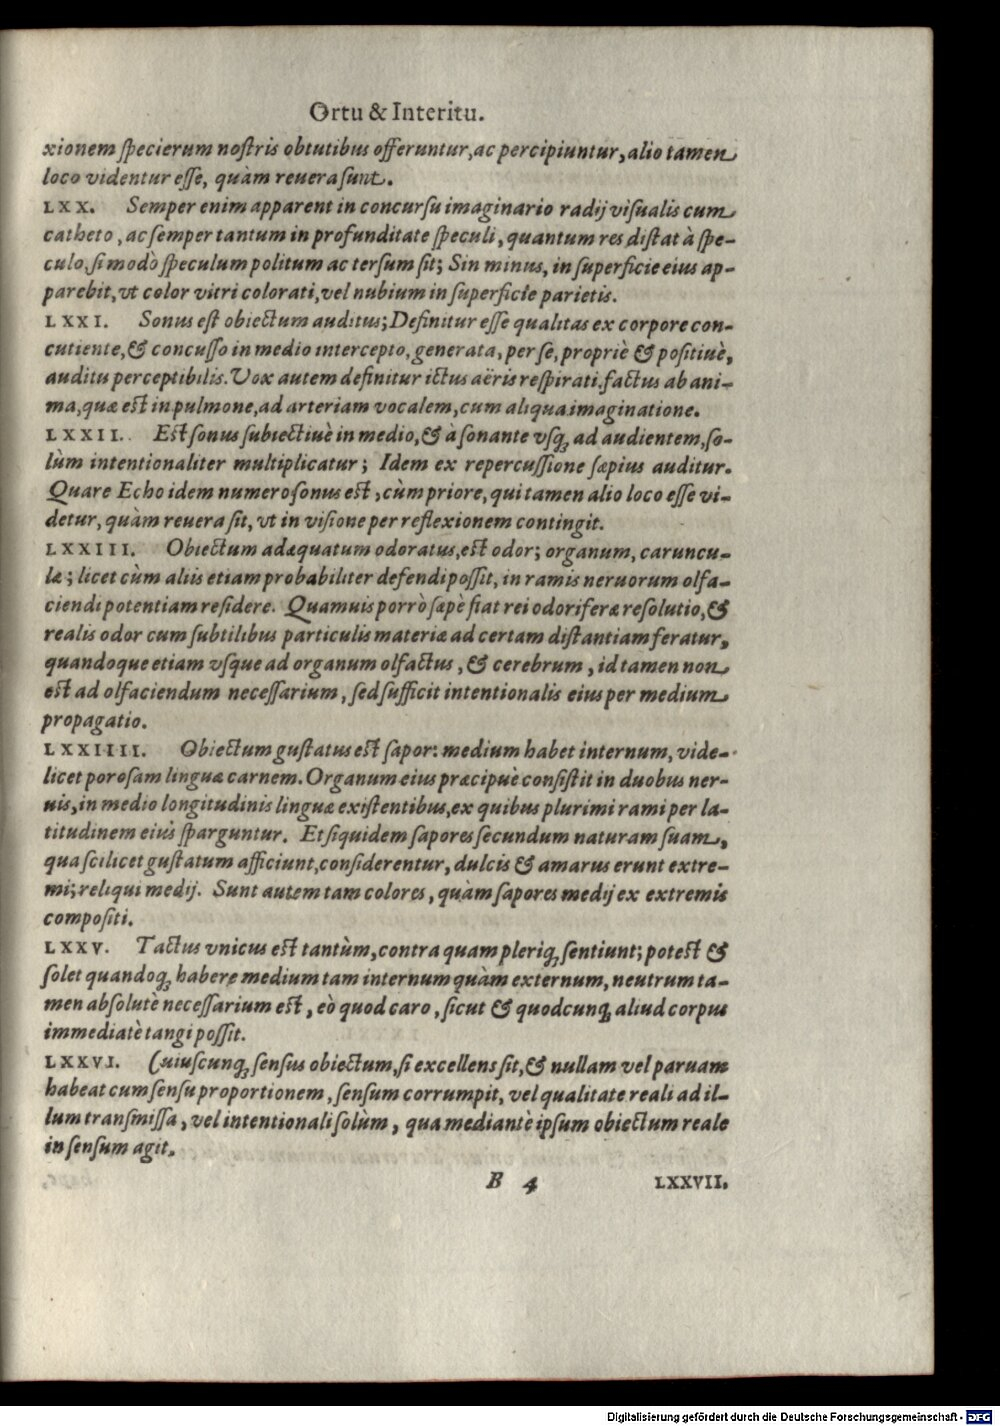 Ortu & Interitu.
xionem ſpecierum noſtris obtutibus offeruntur, ac percipiuntur, alio tamen
loco videntur eſſe, quàm reuera ſunt.
LXX. Semper enim apparent in concurſu imaginario radij viſualis cum
catheto, ac ſemper tantum in profunditate ſpeculi, quantum res diſtat à ſpe-
culo, ſi modò ſpeculum politum ac terſum ſit; Sin minus, in ſuperficie eius ap-
parebit, vt color vitri colorati, vel nubium in ſuperficie parietis.
LXXI. Sonus eſt obiectum auditus; Definitur eſſe qualitas ex corpore con-
cutiente, & concuſſo in medio intercepto, generata, per ſe, propriè & poſitiuè,
auditu perceptibilis. Vox autem definitur ictus aëris reſpirati, factus ab ani-
ma, quæ eſt in pulmone, ad arteriam vocalem, cum aliqua imaginatione.
LXXII. Eſt ſonus ſubiectiuè in medio, & à ſonante vſq́; ad audientem, ſo-
lùm intentionaliter multiplicatur; Idem ex repercuſſione ſæpius auditur.
Quare Echo idem numero ſonus eſt, cùm priore, qui tamen alio loco eſſe vi-
detur, quàm reuera ſit, vt in viſione per reflexionem contingit.
LXXIII. Obiectum adæquatum odoratus, eſt odor; organum, caruncu-
læ; licet cùm aliis etiam probabiliter defendi poſſit, in ramis neruorum olfa-
ciendi potentiam reſidere. Quamuis porrò ſæpè fiat rei odoriferæ reſolutio, &
realis odor cum ſubtilibus particulis materiæ ad certam diſtantiam feratur,
quandoque etiam vſque ad organum olfactus, & cerebrum, id tamen non
eſt ad olfaciendum neceſſarium, ſed ſufficit intentionalis eius per medium
propagatio.
LXXIIII. Obiectum guſtatus eſt ſapor: medium habet internum, vide-
licet poroſam linguæ carnem. Organum eius præcipuè conſiſtit in duobus ner-
uis, in medio longitudinis linguæ exiſtentibus, ex quibus plurimi rami per la-
titudinem eius ſparguntur. Et ſiquidem ſapores ſecundum naturam ſuam,
qua ſcilicet guſtatum afficiunt, conſiderentur, dulcis & amarus erunt extre-
mi; reliqui medij. Sunt autem tam colores, quàm ſapores medij ex extremis
compoſiti.
LXXV. Tactus vnicus eſt tantùm, contra quam pleriq; ſentiunt; poteſt &
ſolet quandoq; habere medium tam internum quàm externum, neutrum ta-
men abſolutè neceſſarium eſt, eò quod caro, ſicut & quodcunq; aliud corpus
immediatè tangi poſſit.
LXXVI. Cuiuſcunq; ſenſus obiectum, ſi excellens ſit, & nullam vel paruam
habeat cum ſenſu proportionem, ſenſum corrumpit, vel qualitate reali ad il-
lum tranſmiſſa, vel intentionali ſolùm, qua mediantè ipſum obiectum reale
in ſenſum agit.
B 4 LXXVII.
Digitalisierung gefördert durch die Deutsche Forschungsgemeinschaft - DFG